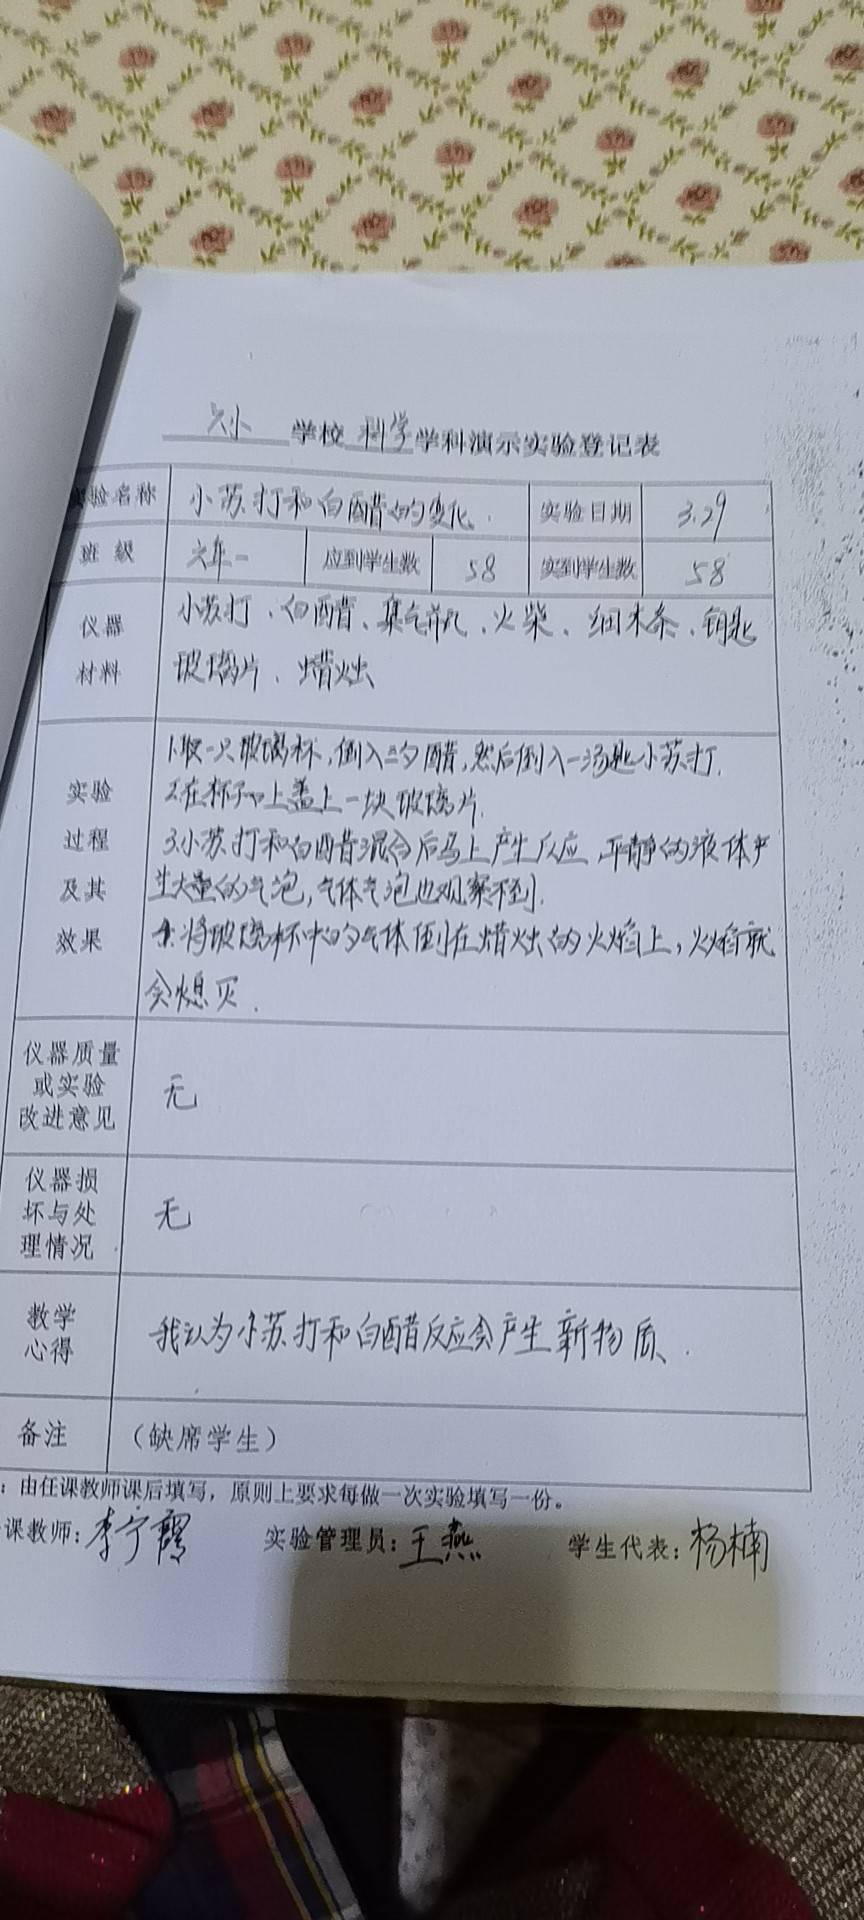 六小 学校 科学 学科演示实验登记表
验名称 小苏打和白醋的变化. 实验日期 3.29
班 级 六年一 应到学生数 58 实到学生数 58
仪器 小苏打、白醋、集气瓶、火柴、细木条、钥匙
材料 玻璃片、蜡烛
1.取一只玻璃杯,倒入 醋,然后倒入一汤匙小苏打.
实验 2.在杯子口上盖上一块玻璃片.
过程 3.小苏打和白醋混合后马上产生反应,平静的液体产
及其 生大量的气泡,气体气泡也观察不到.
效果 4.将玻璃杯中的气体倒在蜡烛的火焰上,火焰就
会熄灭.
仪器质量
或实验 无
改进意见
仪器损
坏与处 无
理情况
教学 我认为小苏打和白醋反应会产生新物质.
心得
备注 (缺席学生)
:由任课教师课后填写,原则上要求每做一次实验填写一份。
课教师:李宁霞 实验管理员:王燕 学生代表:杨楠